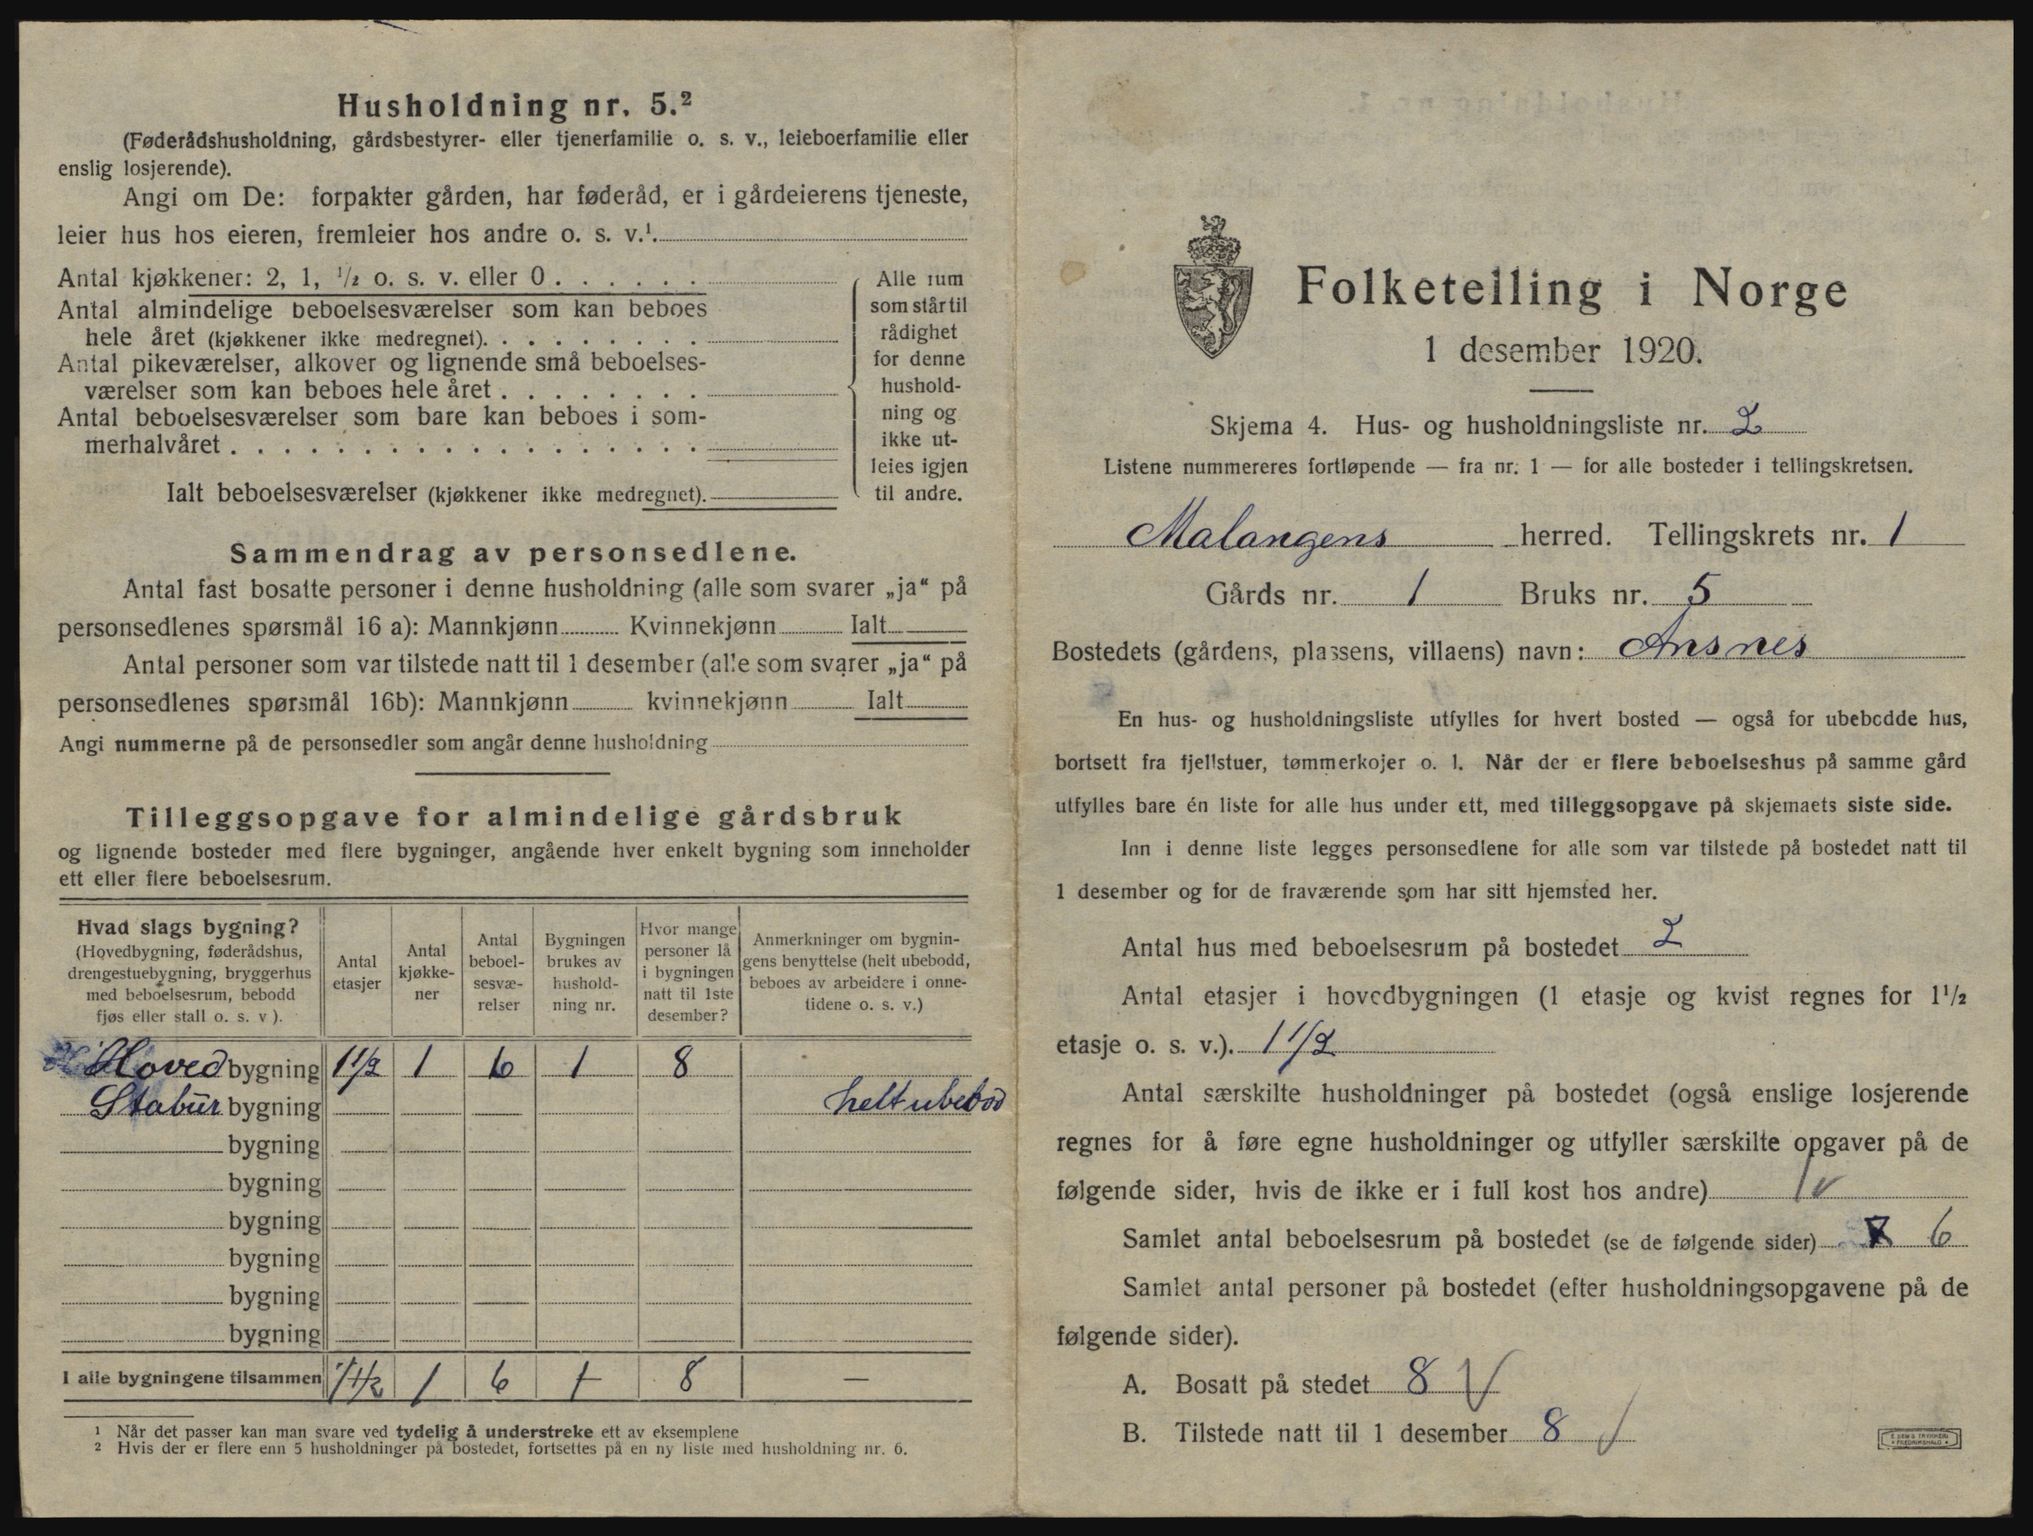 Husholdning nr. 5.²
(Føderådshusholdning, gårdsbestyrer- eller tjenerfamilie o. s. v., leieboerfamilie eller
enslig losjerende).
Angi om De: forpakter gården, har føderåd, er i gårdeierens tjeneste,
leier hus hos eieren, fremleier hos andre o. s. v.¹.
Antal kjøkkener: 2, 1, ½ o. s. v. eller 0 . . . . . .
Antal almindelige beboelsesværelser som kan beboes
hele året (kjøkkener ikke medregnet). . . . . . . . .
Antal pikeværelser, alkover og lignende små beboelses-
værelser som kan beboes hele året . . . . . . . .
Antal beboelsesværelser som bare kan beboes i som-
merhalvåret . . . . . . . . . . . . . . . . . .
Ialt beboelsesværelser (kjøkkener ikke medregnet).
Alle rum
som står til
rådighet
for denne
hushold-
ning og
ikke ut-
leies igjen
til andre.
Sammendrag av personsedlene.
Antal fast bosatte personer i denne husholdning (alle som svarer „ja“ på
personsedlenes spørsmål 16 a): Mannkjønn Kvinnekjønn Ialt
Antal personer som var tilstede natt til 1 desember (alle som svarer „ja“ på
personsedlenes spørsmål 16b): Mannkjønn kvinnekjønn Ialt
Angi nummerne på de personsedler som angår denne husholdning
Tilleggsopgave for almindelige gårdsbruk
og lignende bosteder med flere bygninger, angående hver enkelt bygning som inneholder
ett eller flere beboelsesrum.
Hvad slags bygning?
(Hovedbygning, føderådshus,
drengestuebygning, bryggerhus
med beboelsesrum, bebodd
fjøs eller stall o. s. v ).
Antal
etasjer
Antal
kjøkke-
ner
Antal
beboel-
sesvæ-
relser
Bygningen
brukes av
hushold-
ning nr.
Hvor mange
personer lå
i bygningen
natt til 1ste
desember?
Anmerkninger om bygnin-
gens benyttelse (helt ubebodd,
beboes av arbeidere i onne-
tidene o. s. v.)
Hoved bygning 1½ 1 6 1 8
Stabur bygning helt ubebod
bygning
bygning
bygning
bygning
bygning
bygning
I alle bygningene tilsammen 1½ 1 6 1 8 —
¹ Når det passer kan man svare ved tydelig å understreke ett av eksemplene
² Hvis der er flere enn 5 husholdninger på bostedet, fortsettes på en ny liste med husholdning nr. 6.
Folketelling i Norge
1 desember 1920.
Skjema 4. Hus- og husholdningsliste nr. 2
Listene nummereres fortløpende — fra nr. 1 — for alle bosteder i tellingskretsen.
Malangens herred. Tellingskrets nr. 1
Gårds nr. 1 Bruks nr. 5
Bostedets (gårdens, plassens, villaens) navn: Ansnes
En hus- og husholdningsliste utfylles for hvert bosted — også for ubebodde hus,
bortsett fra fjellstuer, tømmerkojer o. l. Når der er flere beboelseshus på samme gård
utfylles bare én liste for alle hus under ett, med tilleggsopgave på skjemaets siste side.
Inn i denne liste legges personsedlene for alle som var tilstede på bostedet natt til
1 desember og for de fraværende som har sitt hjemsted her.
Antal hus med beboelsesrum på bostedet 2
Antal etasjer i hovedbygningen (1 etasje og kvist regnes for 1½
etasje o. s. v.). 1½
Antal særskilte husholdninger på bostedet (også enslige losjerende
regnes for å føre egne husholdninger og utfyller særskilte opgaver på de
følgende sider, hvis de ikke er i full kost hos andre) 1
Samlet antal beboelsesrum på bostedet (se de følgende sider) 6
Samlet antal personer på bostedet (efter husholdningsopgavene på de
følgende sider).
A. Bosatt på stedet 8
B. Tilstede natt til 1 desember 8